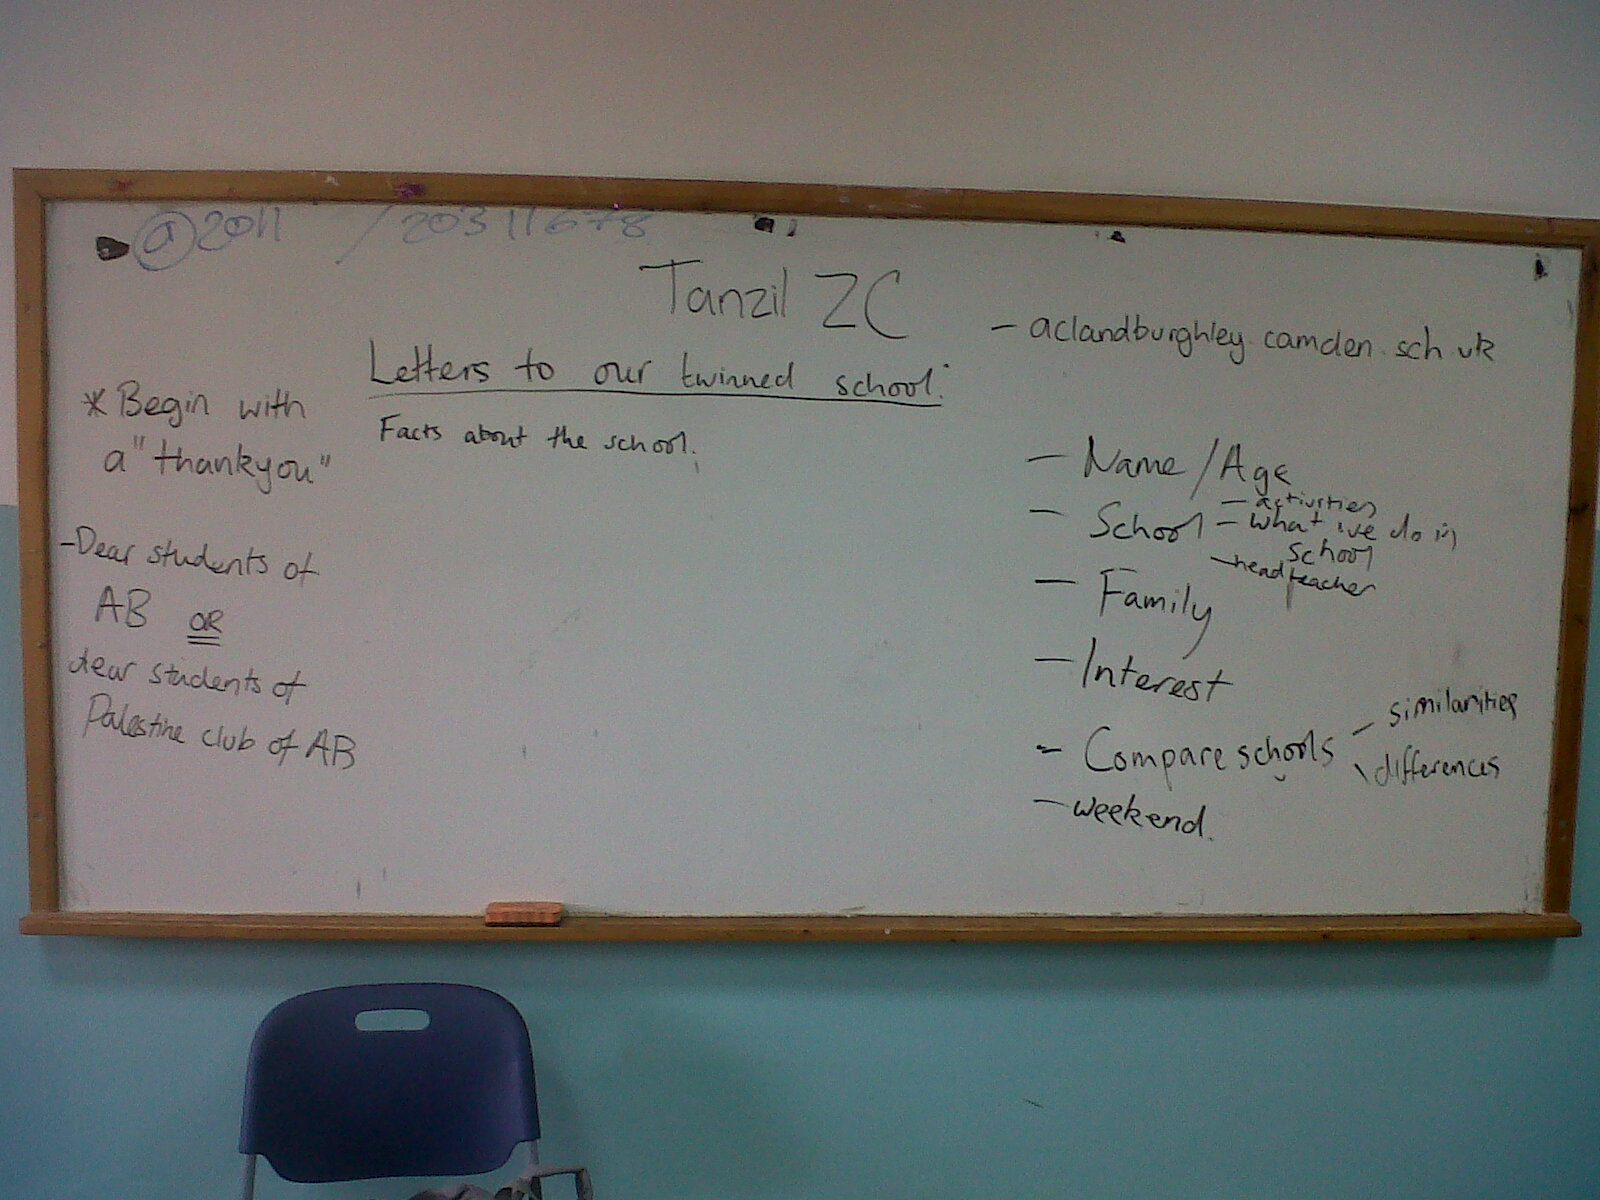 @2011 /20311678
Tanzil ZC
- aclandburghley.camden.sch uk
Letters to our twinned school:
Facts about the school.
* Begin with
a "thankyou"
- Dear students of
AB OR
dear students of
Palestine club of AB
- Name / Age
- School - activities
- what we do in
school
- headteacher
- Family
- Interest
- Compare schools - similarities
\ differences
- weekend.